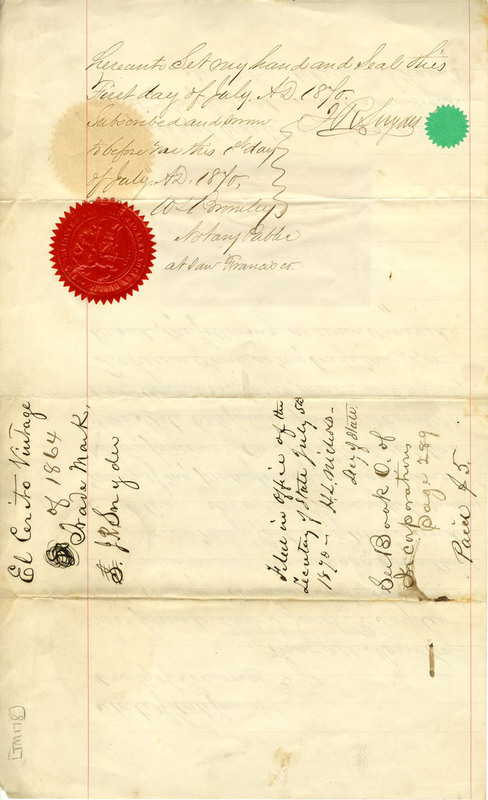 hereunto Set my hand and Seal this
First day of July, A.D. 1870,
J R Snyder
Subscribed and sworn
to before me this 1st day
of July A.D. 1870,
Notary Public
at San Francisco.
El Cerito Vintage
of 1864
Trade Mark,
J. R. Snyder
Filed in Office of the
Secretary of State July 5th
1870 — H. L. Nichols —
Sec of State
See Book O. of
Incorporations
Page 289
Paid $5.
[TM178]